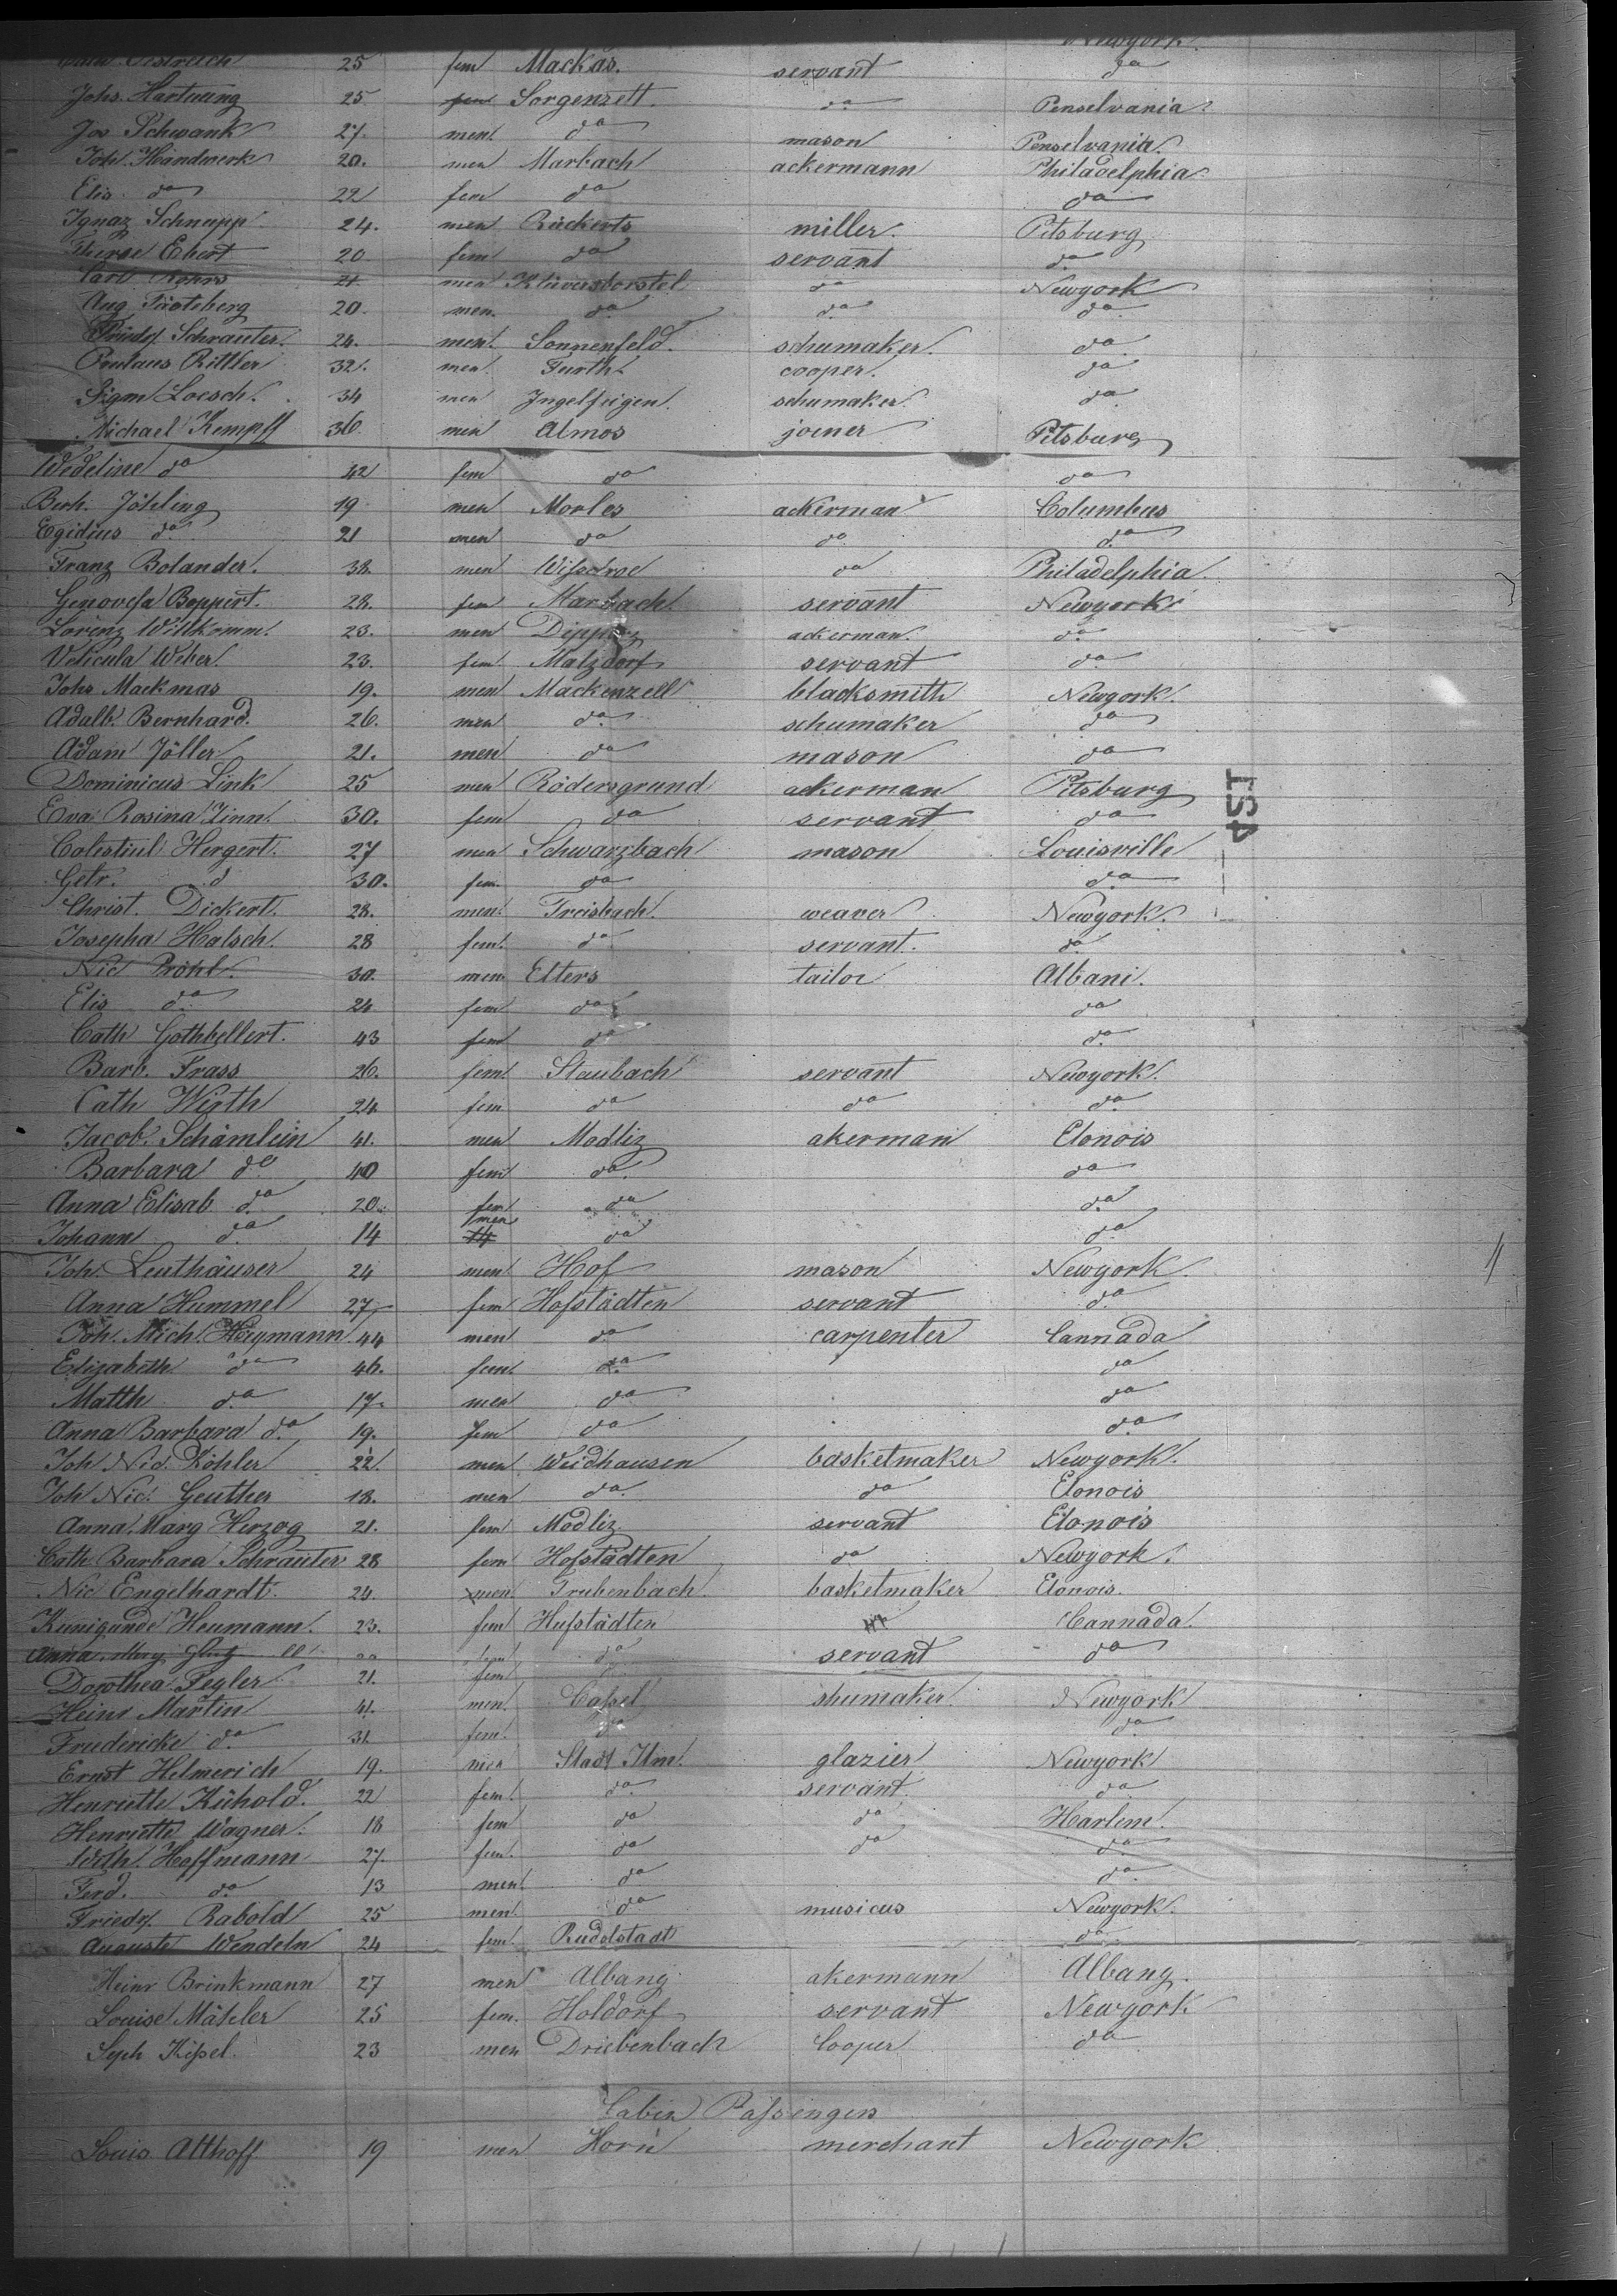 Newyork
Oestreich 25 fem Mackas. servant do
Johs. Hartung 25 fem Sorgenzell. do Penselvania
Jos Schwank 27. men do mason Penselvania.
Joh. Handwerk 20. men Marbach ackermann Philadelphia
Elis do 22 fem do do
Ignaz Schnupp 24. men Rückerts miller. Pitsburg
Therese Ebert 20 fem do servant do
Carl 21 men Klüversborstel do Newyork
Aug. 20. men. do do do
Friedr. Schrauter. 24. men. Sonnenfeld. schumaker. do
Rittler 32. men Furth cooper. do
Sigm Loesch. 34 men Ingelfigen. schumaker. do
Michael Kempff 36 men Almos joiner Pitsburg
Wedeline do 42 fem do do
Berh. Jöhling 19 men Morles ackerman Columbus
Egidius do 21 men do do do
Franz Bolander. 38. men do Philadelphia
Genovefa Boppert. 28. fem Marbach servant Newyork
Lorenz Willkomm. 23. men ackerman. do
Velicula Weber. 23. fem Malzdorf servant do
Johs Mackmas 19. men Mackenzell blacksmith Newyork.
Adalb. Bernhard. 26. men do schumaker do
Adam Jöller 21. men do mason do
Dominicus Link 25 men Rödersgrund ackerman Pitsburg
Eva Rosina Zinn. 30. fem do servant do
Colestinl Hergert. 27 men Schwarzbach mason Louisville
Getr. d 30. fem. do do
Christ. Dickert. 28. men. Treisbach. weaver Newyork.
Josepha Halsch. 28 fem. do servant. do
Nic Pröhl. 30. men Elters tailor Albani.
Elis do 24 fem do do
Cath Gothbellert. 43 fem do do
Barb. Frass 26. fem. Staubach servant Newyork.
Cath Wirth 24 fem do do do
Jacob. Schämlein 41. men Modliz akerman Elonois
Barbara do 40 fem do do
Anna Elisab do 20. fem do do
Johann do 14 men do do
Joh. Leuthäuser 24 men Hof mason Newyork.
Anna Hummel 27 fem Hofstädten servant do
Joh. Mich. Heymann 44 men do carpenter Cannada
Elizabeth do 46. fem. do do
Matth do 17. men do do
Anna Barbara do 19. fem do do
Joh Nic. Köhler 22. men Weidhausen basketmaker Newyork.
Joh Nic. Geuther 18. men do do Elonois
Anna Marg Herzog 21. fem Modliz servant Elonois
Cath Barbara Schrauter 28 fem Hofstädten do Newyork.
Nic Engelhardt. 24. men Trubenbach basketmaker Elonois.
Kunigunde Heumann. 23. fem Hufstädten Cannada.
Anna Marg fem do servant do
Dorothea Pegler 21. fem
Heinr Martin 41. men. Cassel shumaker Newyork
Fredericke do 31 fem. do do
Ernst Helmerich 19. men Stadt Ilm. glazier Newyork
Henriette Kühold. 22 fem. do servant. do
Henriette Wagner. 18 fem do do Harlem.
Hoffmann 27. fem. do do do
Ferd. do 13 men. do do
Friedr. Rabold 25 men. do musicus Newyork.
Auguste Wendeln 24 fem. Rudolstadt do
Heinr Brinkmann 27 men Albang akermann Albang.
Louise Mähler 25 fem. Holdorf servant Newyork
Seph Kissel. 23 men Driebenbach Cooper do
Cabin Passengers
Louis Althoff 19 men Horn merchant Newyork
LS4